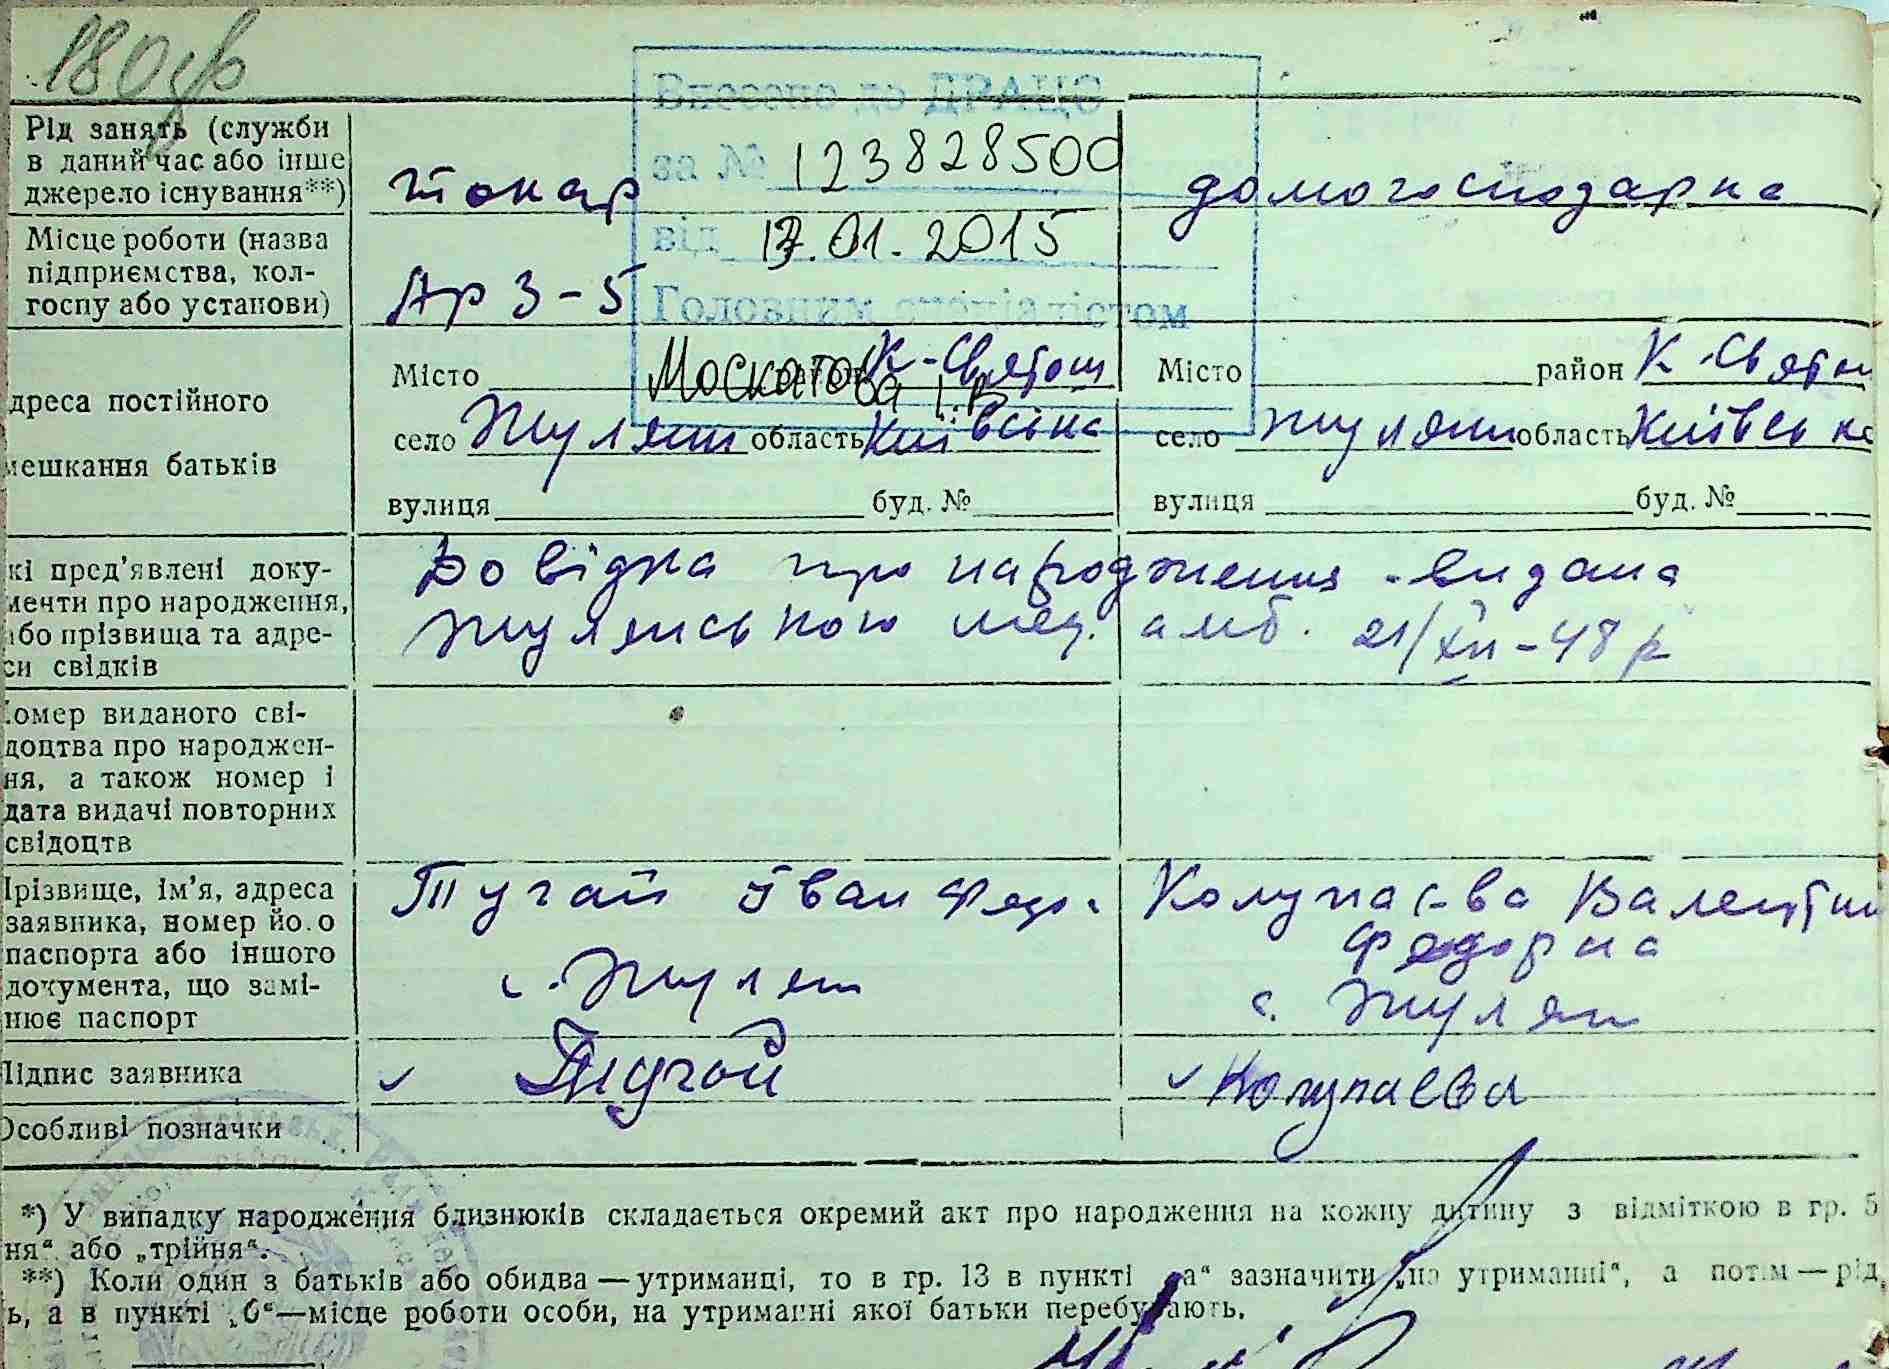 180
Внесено до ДРАЦС
за № 123828500
від 17.01.2015
Головним спеціалістом
Москатова І.В
Рід занять (служби
в даний час або інше
джерело існування**)
токар
домогосподарка
Місце роботи (назва
підприємства, кол-
госпу або установи)
АРЗ-5
дреса постійного
мешкання батьків
Місто К-Святош
село Жуляни область Київська
вулиця буд. №
Місто район К-Святош
село Жуляни область Київська
вулиця буд. №
кі пред’явлені доку-
менти про народження,
або прізвища та адре-
си свідків
Довідка про народження - видана
Жулянською мед. амб. 21/XII-48 р
омер виданого сві-
доцтва про народжен-
ня, а також номер і
дата видачі повторних
свідоцтв
Прізвище, ім’я, адреса
заявника, номер його
паспорта або іншого
документа, що замі-
нює паспорт
Тугай Іван Федо.
с. Жуляни
Колупаєва Валентин
Федорна
с. Жуляни
Підпис заявника
Тугай
Колупаєва
Особливі позначки
*) У випадку народження близнюків складається окремий акт про народження на кожну дитину з відміткою в гр. 5
ня“ або „трійня“.
**) Коли один з батьків або обидва — утриманці, то в гр. 13 в пункті „а“ зазначити „на утриманні“, а потім — рід
ь, а в пункті „б“ — місце роботи особи, на утриманні якої батьки перебувають.